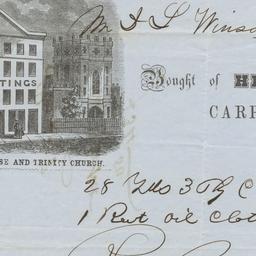 Mr I L Winso
TINGS
Bought of HE
CARP
SE AND TRINITY CHURCH.
28 Yds 3 Ply C
1 Rem't oil Clot